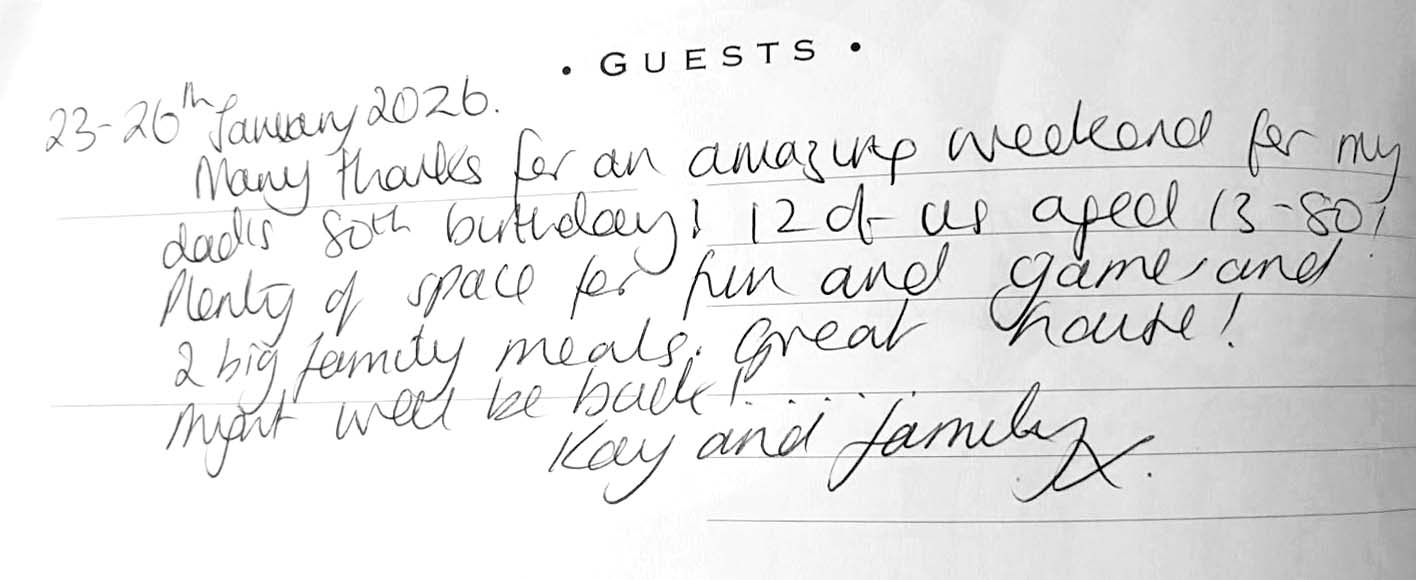 • GUESTS •
23-26th January 2026.
Many thanks for an amazing weekend for my
dad's 80th birthday! 12 of us aged 13-80!
Plenty of space for fun and games and
2 big family meals. Great house!
Might well be back!.....
Kay and family x.